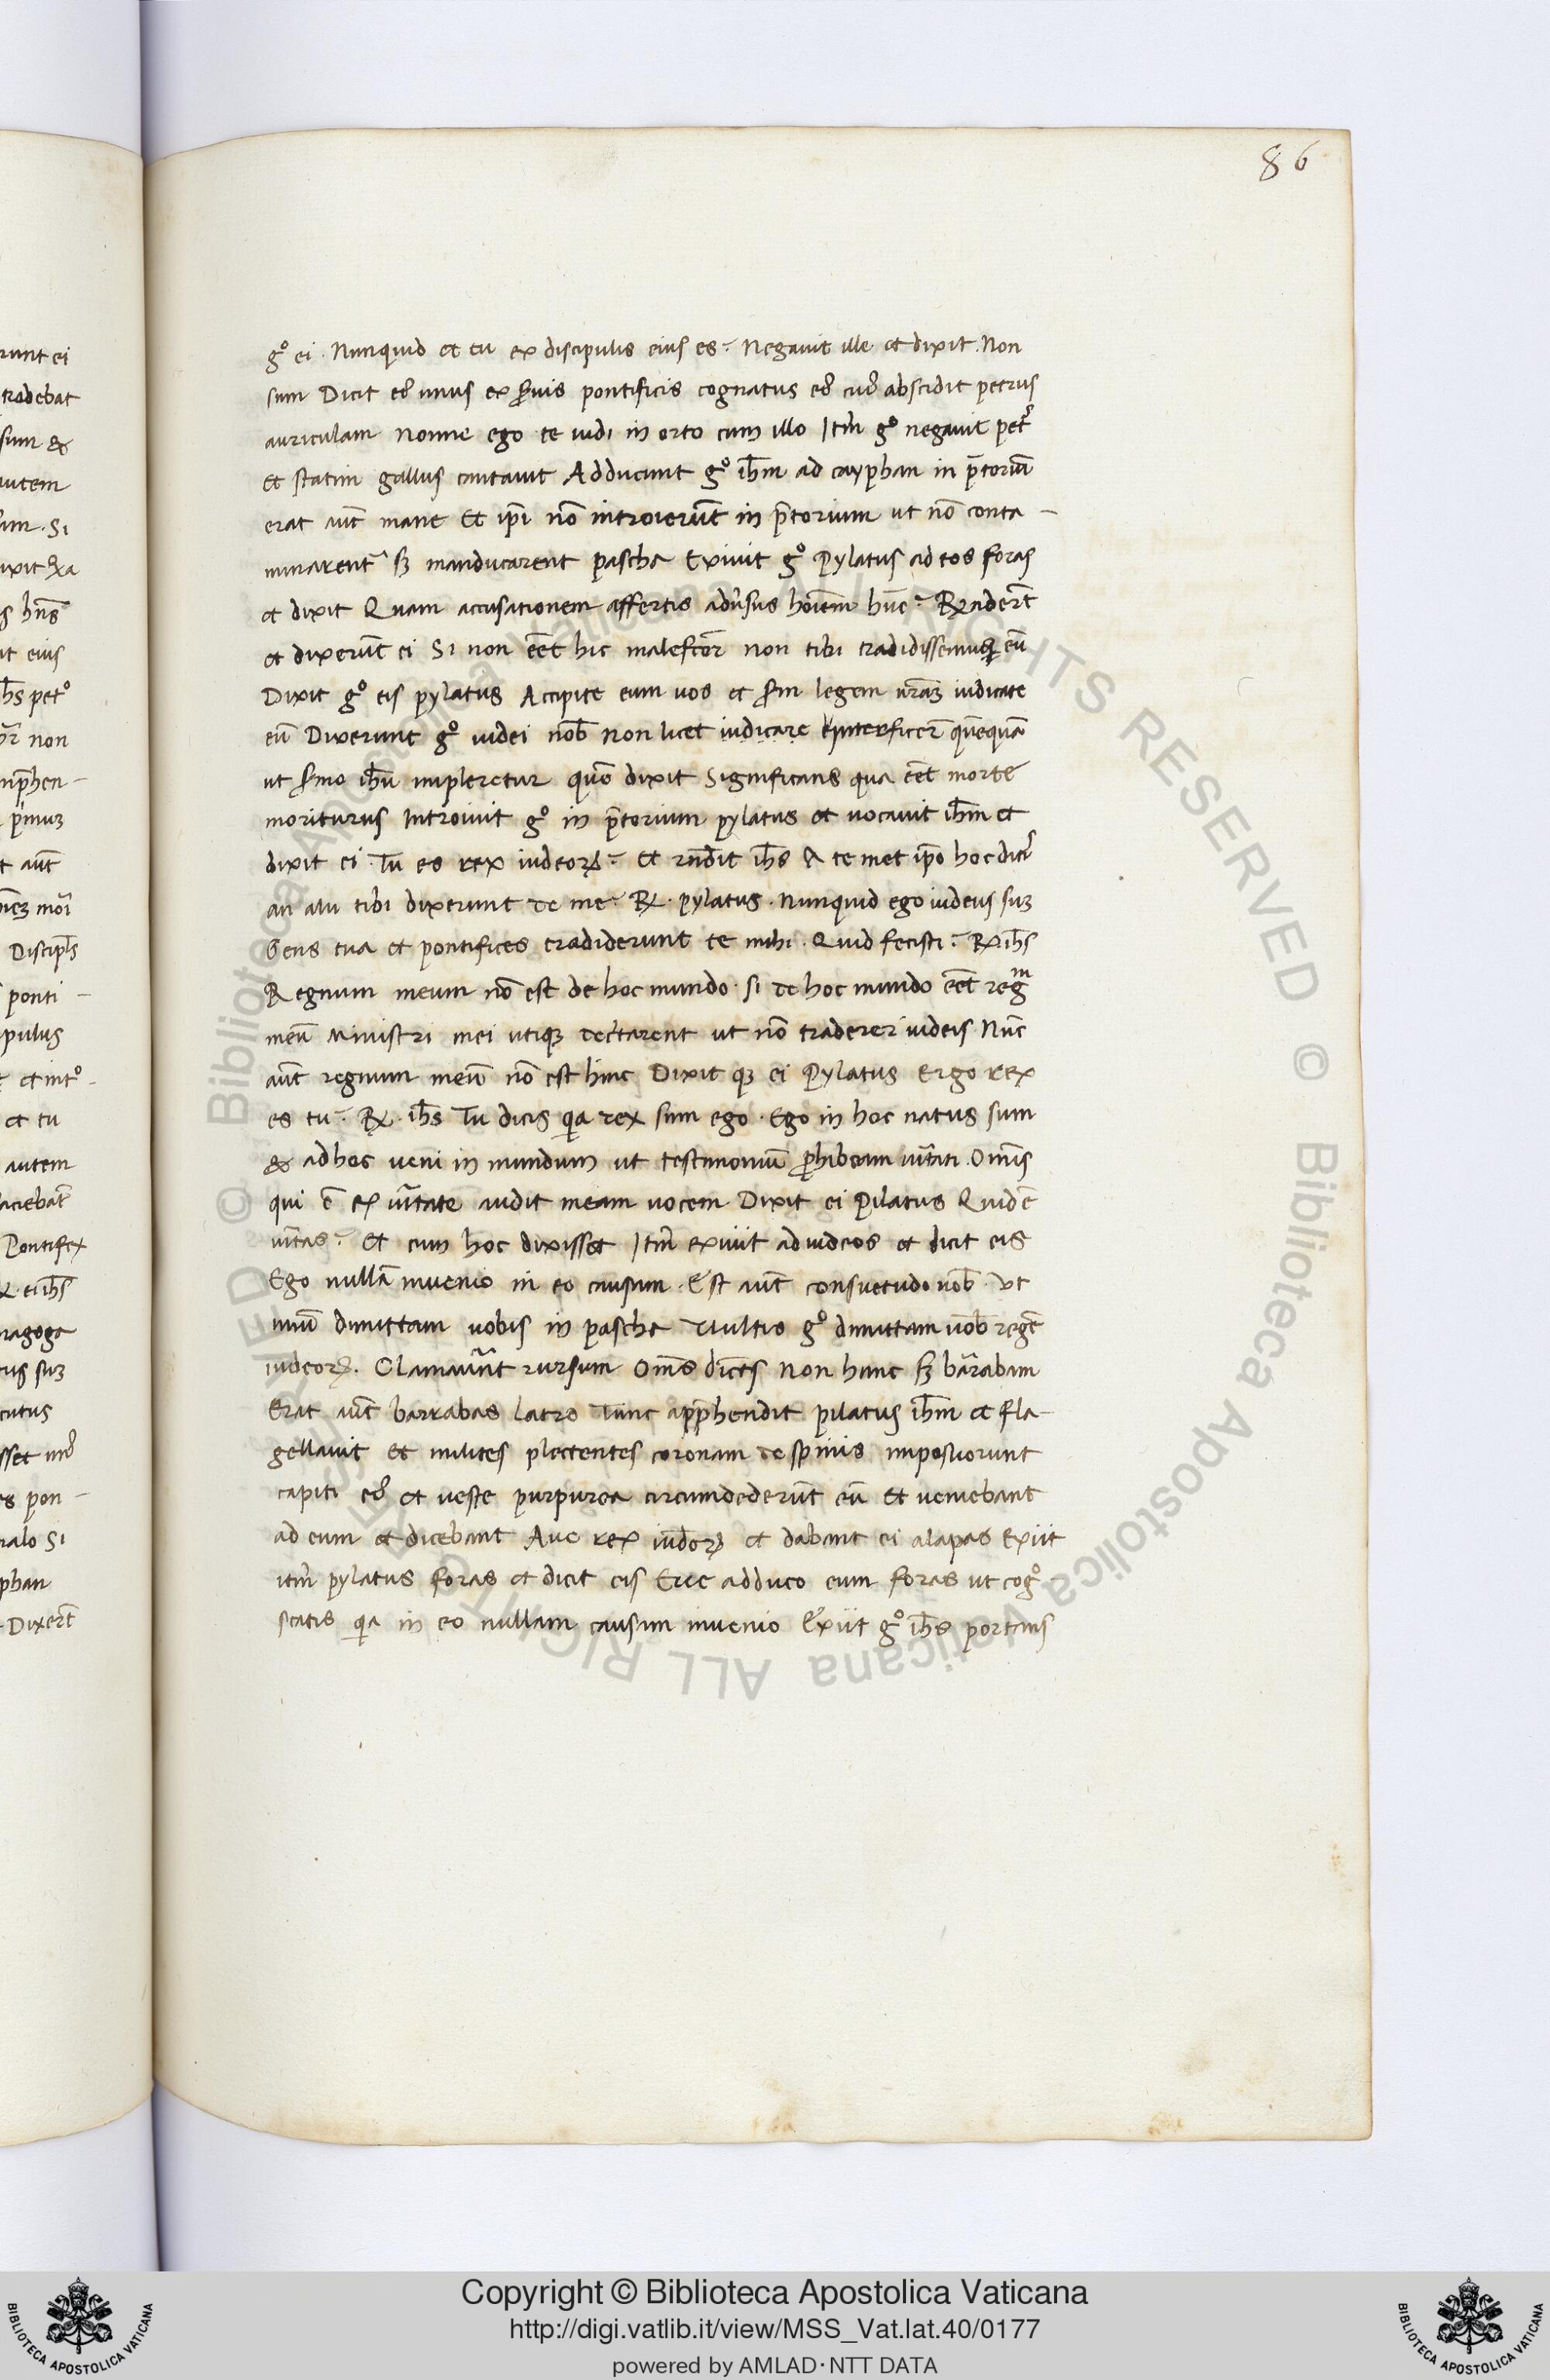 86
gº ei · Nunquid et tu ex discipulis eius es? Negauit ille et dixit. Non
sum Dicit eꝰ unus ex ẜuis pontificis cognatus eꝰ cuꝰ abscidit petrus
auriculam nonne ego te uidi in orto cum illo Itm̃ gº negauit petꝰ
et statim gallus cantauit Adducunt gº ihm̃ ad cayphan in p̃toriũ
erat aut̃ mane Et ip̃i nõ introierũt in p̃torium ut nõ conta-
minarent᷑ sꝫ manducarent pascha Exiuit gº Pylatus ad eos foras
et dixit Quam accusationem affertis adũsus hoĩem hũc? Rñdert̃
et dixerũt ei Si non eẽt hic malefcõr non tibi tradidissemus eũ
Dixit gº eis pylatus Accipite eum uos et ẜm legem ur̃aꝫ iudicate
eũ Dixerunt gº iudei nob̃ non licet iudicare interficer̃ quẽquã
ut ẜmo ihũ impleretur quẽ dixit Significans qua eẽt morte
moriturus Introiuit gº in p̃torium pylatus et uocauit ihm̃ et
dixit ei · Tu es rex iudeoꝝ? Et rñdit ihs̃ A te met ip̃o hoc dicis
an alii tibi dixerunt de me? ℞ · pylatus · Nunquid ego iudeus suꝫ
Gens tua et pontifices tradiderunt te mihi · Quid fecisti? ℞ ihs̃
Regnum meum nõ est de hoc mundo · si de hoc mundo eẽt regm
meũ Ministri mei utiqꝫ dec̃tarent ut nõ traderer iudeis Nũc
aut̃ regnum meũ nõ est hinc Dixit qꝫ ei Pylatus Ergo rex
es tu? ℞ · ihs̃ Tu dicis qa rex sum ego · Ego in hoc natus sum
& ad hoc ueni in mundum ut testimoniũ ꝓhibeam uĩtati. Om̃is
qui ẽ ex uĩtate audit meam uocem Dixit ei Pilatus Quid ẽ
uĩtas? Et cum hoc dixisset Itm̃ exiuit ad iudeos et dicit eis
Ego nullã inuenio in eo causam · Est aut̃ consuetudo uob̃ · Ut
unũ dimittam uobis in pascha Uultis gº dimittam uob̃ regẽ
iudeoꝝ. Clamauer̃nt rursum Om̃s dic̃es Non hunc sꝫ bãrabam
Erat aut̃ barrabas latro Tunc app̃hendit pilatus ihm̃ et fla-
gellauit Et milites plectentes coronam de spinis imposuerunt
capiti eꝰ et ueste purpurea circumdederũt eũ Et ueniebant
ad eum et dicebant Aue rex iudeoꝝ et dabant ei alapas Exiit
itm̃ pylatus foras et dicit eis Ecce adduco eum foras ut cogº
scatis qa in eo nullam causam inuenio Exiit gº ihs̃ portans
Copyright © Biblioteca Apostolica Vaticana
http://digi.vatlib.it/view/MSS_Vat.lat.40/0177
powered by AMLAD·NTT DATA